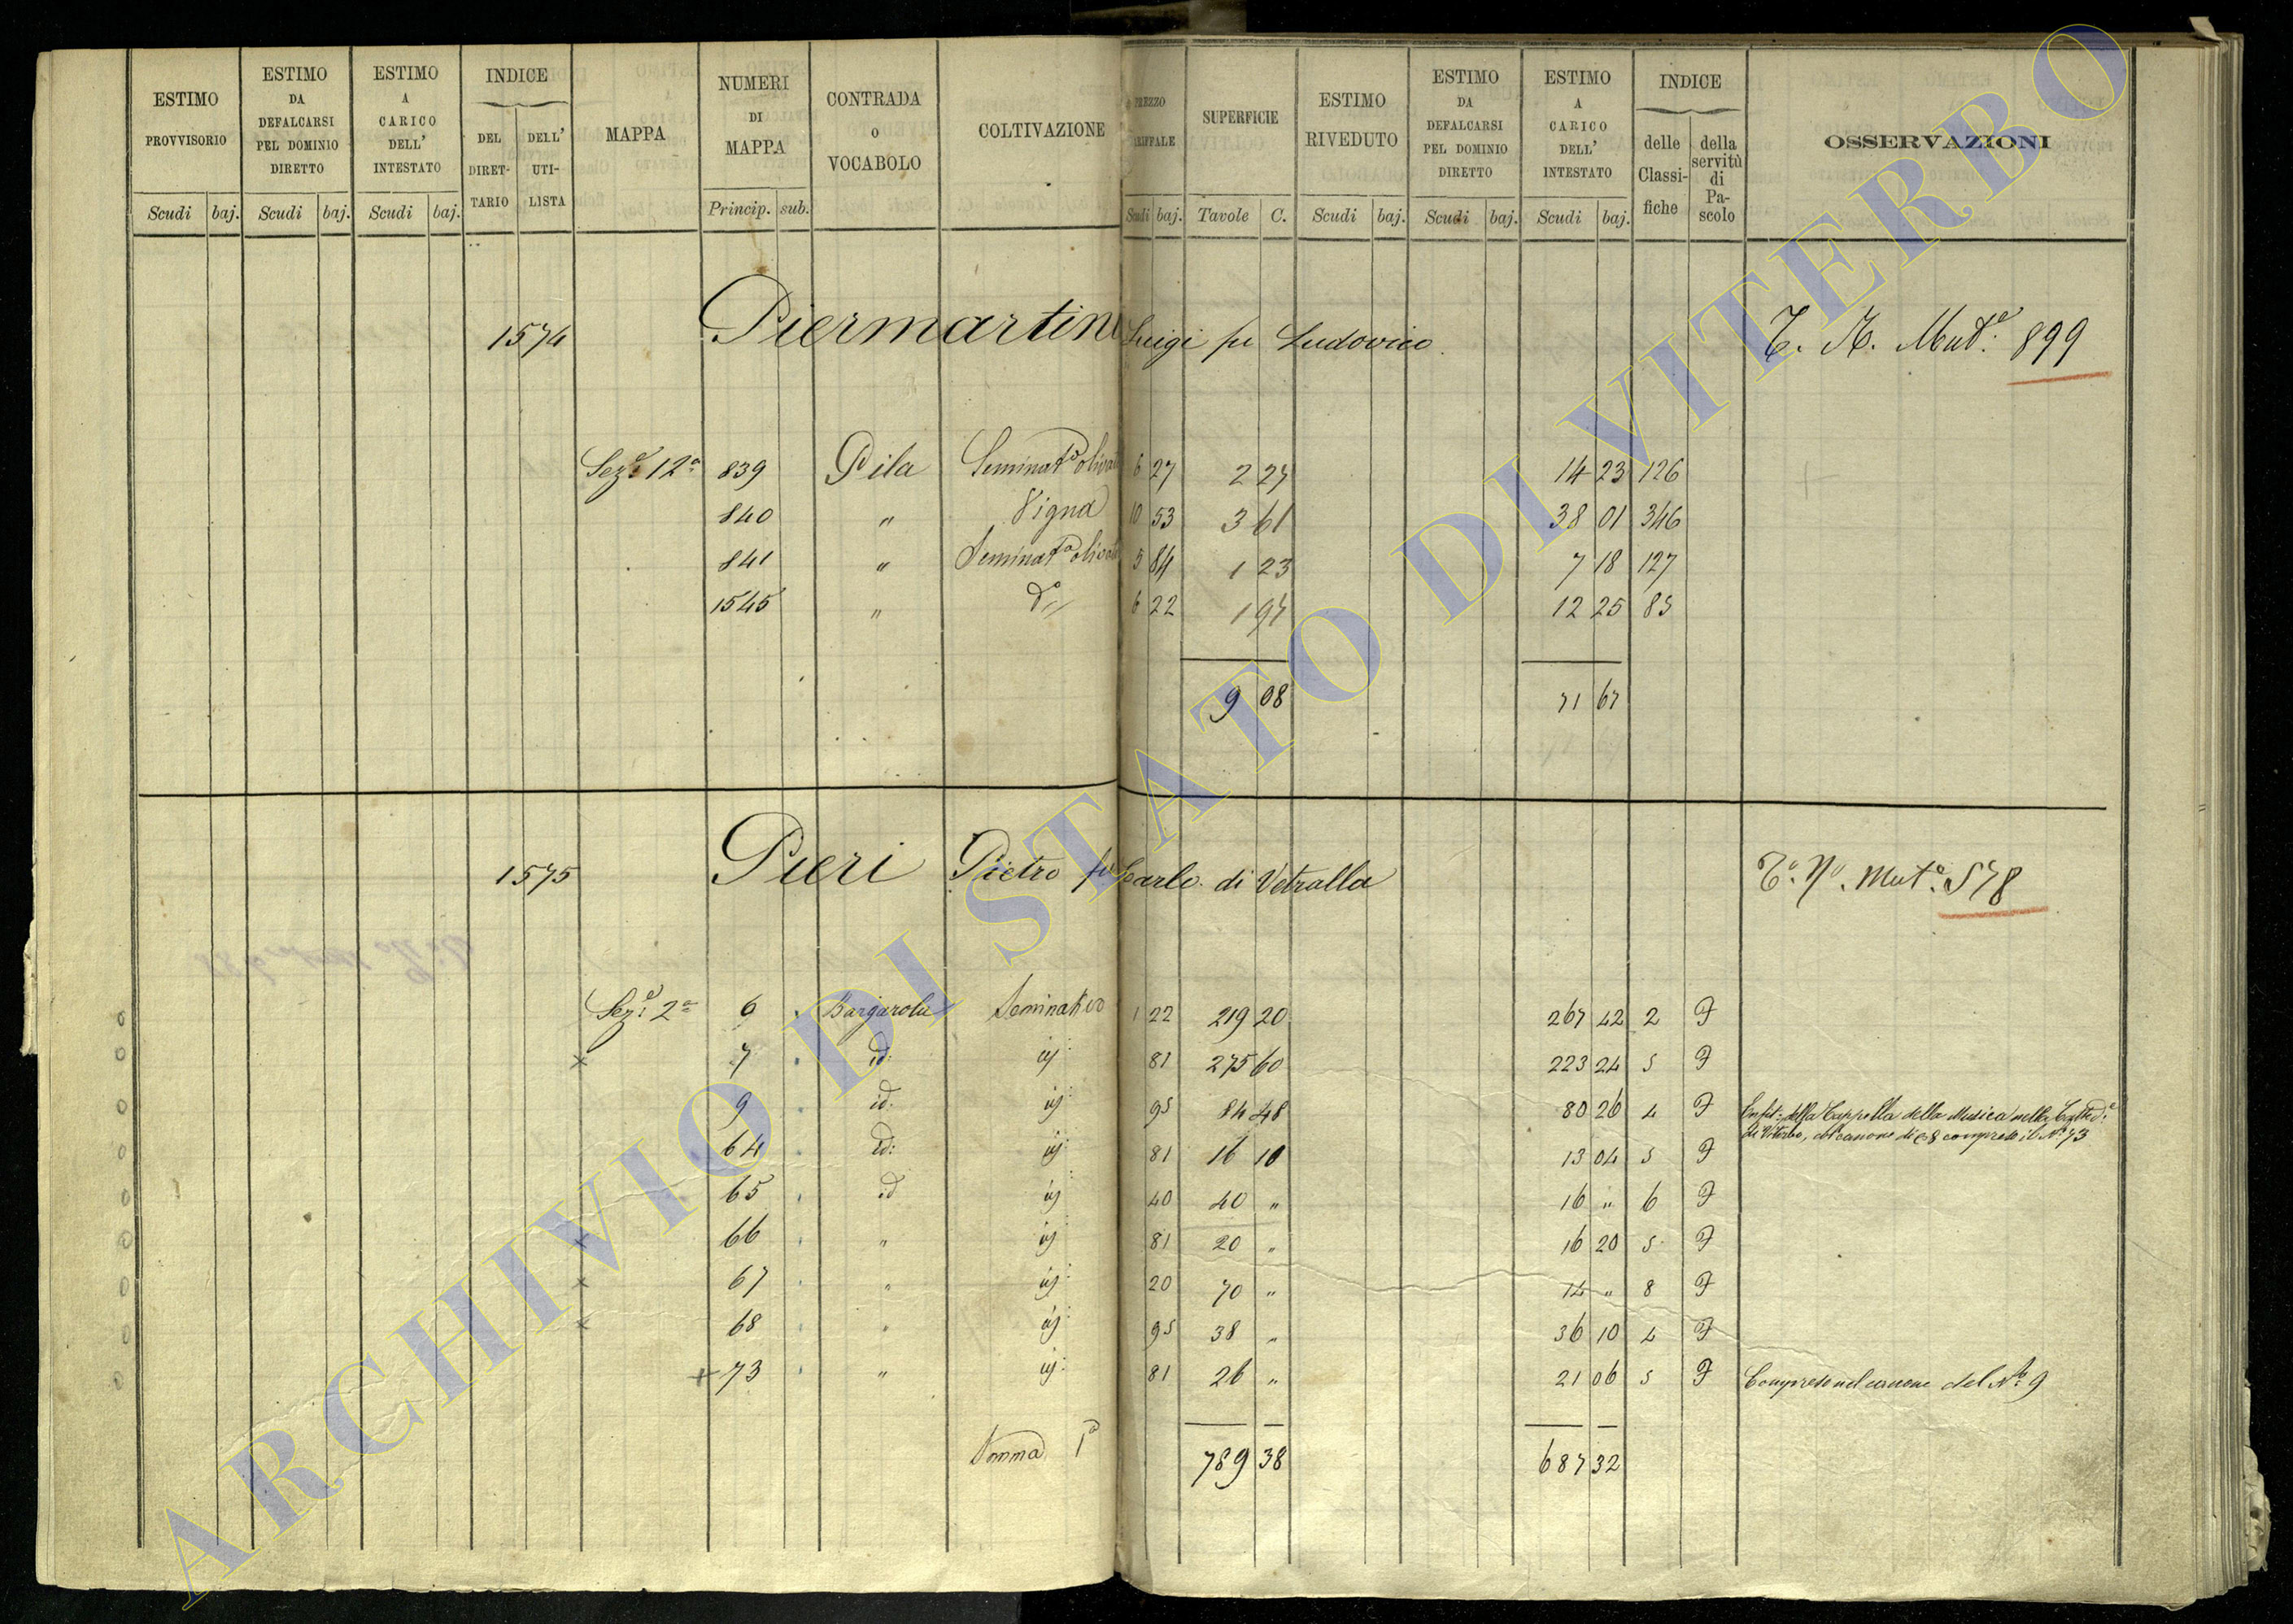 ESTIMO PROVVISORIO | ESTIMO DA DEFALCARSI PEL DOMINIO DIRETTO | ESTIMO A CARICO DELL' INTESTATO | INDICE DEL DIRET-TARIO | DELL' UTI-LISTA | MAPPA | NUMERI DI MAPPA | CONTRADA O VOCABOLO | COLTIVAZIONE | PREZZO TARIFFALE | SUPERFICIE | ESTIMO RIVEDUTO | ESTIMO DA DEFALCARSI PEL DOMINIO DIRETTO | ESTIMO A CARICO DELL' INTESTATO | INDICE delle Classi-fiche | della servitù di Pa-scolo | OSSERVAZIONI
Scudi baj. Scudi baj. Scudi baj. Princip. sub. Scudi baj. Tavole C. Scudi baj. Scudi baj. Scudi baj.
1574 Piermartini Luigi fu Ludovico T. N. Mut.e 899
Sez.e 12a 839 Pila Seminat.o olivato 6 27 2 27 14 23 126
840 " Vigna 10 53 3 61 38 01 346
841 " Seminat.o olivato 5 84 1 23 7 18 127
1545 " d.o 6 22 1 97 12 25 85
9 08 71 67
1575 Pieri Pietro fu Carlo di Vetralla T.o N.o Mut.e 578
Sez.e 2a 6 Bargarola Seminativo 1 22 219 20 267 42 2 F
7 id: id: 81 275 60 223 24 5 F
9 id: id: 95 84 48 80 26 4 F Enfit: della Cappella della Musica nella Catted.e
di Viterbo, col canone di 8 compreso il No 73
64 id: id: 81 16 10 13 04 5 F
65 id id: 40 40 " 16 " 6 F
66 " id: 81 20 " 16 20 5 F
67 " id: 20 70 " 14 " 8 F
68 " id: 95 38 " 36 10 4 F
+ 73 " id: 81 26 " 21 06 5 F Compreso nel canone del No 9
Somma 1a 789 38 687 32
ARCHIVIO DI STATO DI VITERBO